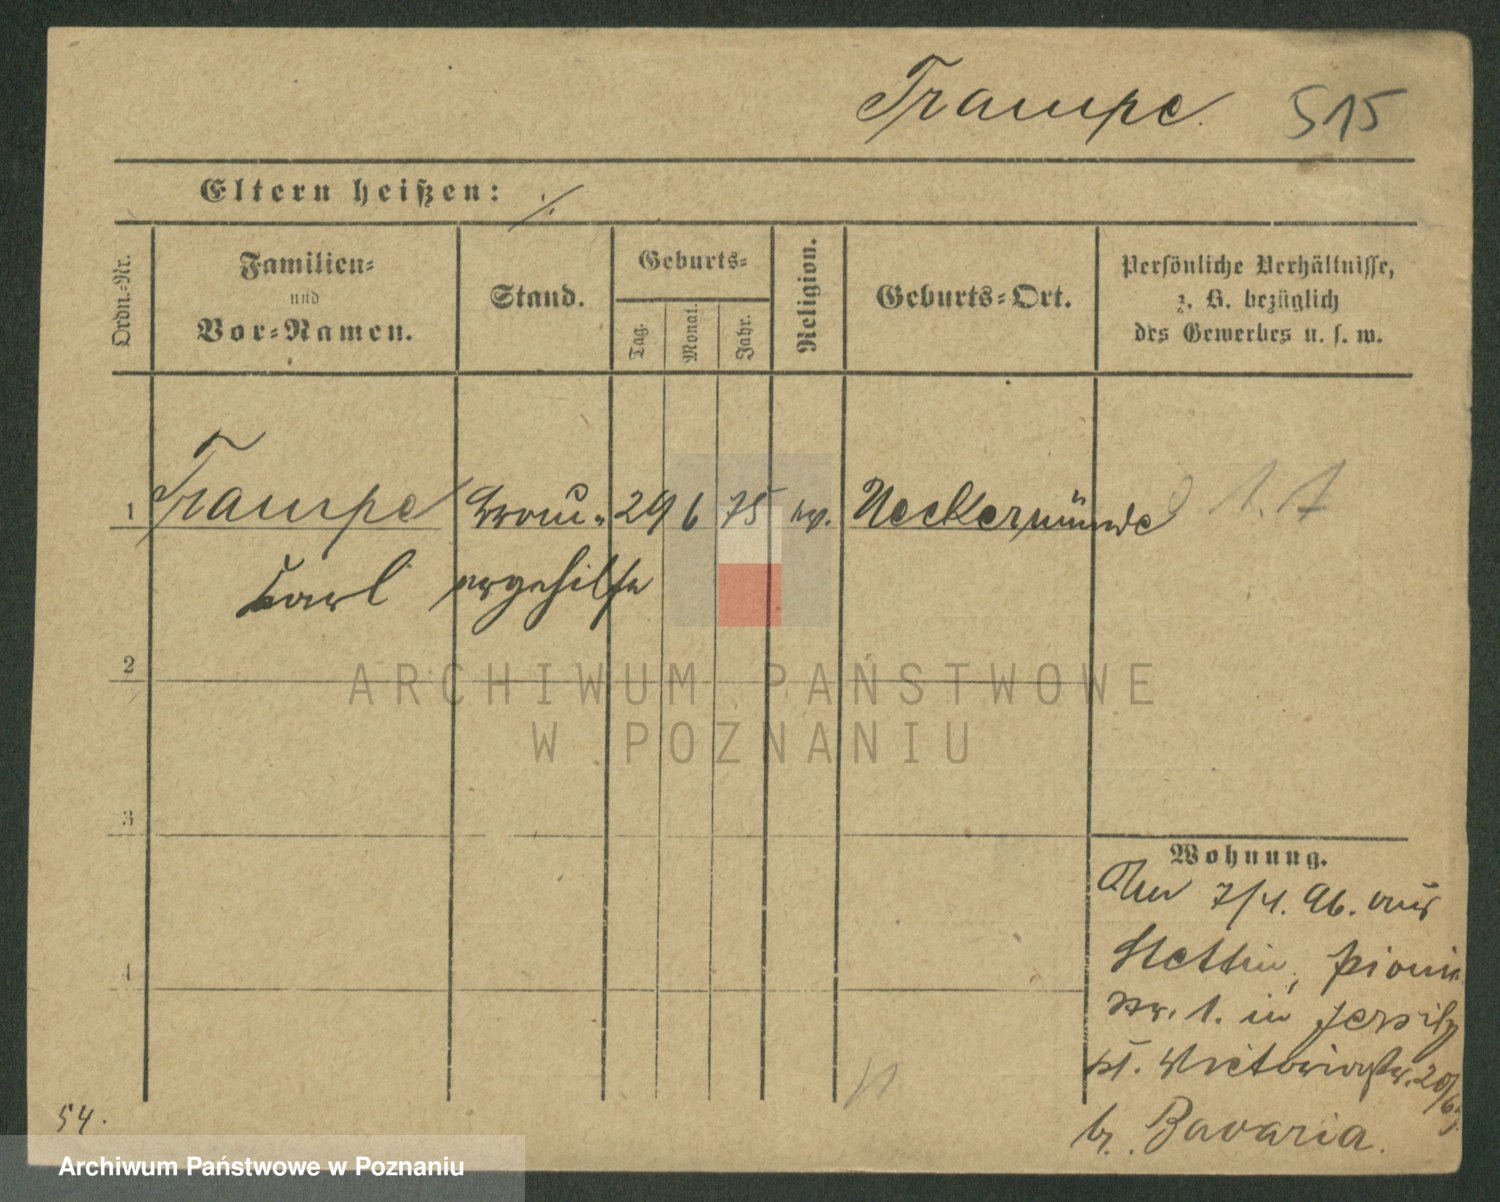 Trampe. 515
Eltern heißen: ./.
Ordn.-Nr.
Familien-
und
Vor-Namen.
Stand.
Geburts-
Tag.
Monat.
Jahr.
Religion.
Geburts-Ort.
Persönliche Verhältnisse,
z. B. bezüglich
des Gewerbes u. s. w.
1 Trampe Brau- 29 6 75 ev. Ueckermünde
Carl ergehilfe
2
3
4
ARCHIWUM PAŃSTWOWE
W POZNANIU
Wohnung.
7/4. 96. aus
Stettin,
Nr. 1. in Jersitz
Victoriastr. 20
b. Bavaria.
54.
Archiwum Państwowe w Poznaniu